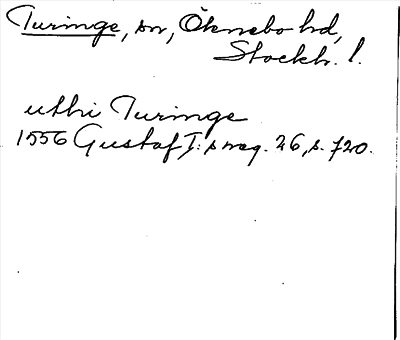 Turinge, sn, Öknebo hd,
Stockh. l.
uthi Turinge
1556 Gustaf I: s reg. 26, s. 720.